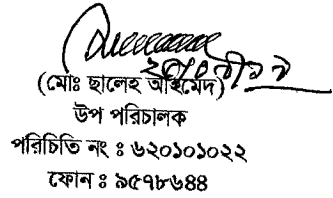 (মোঃ ছালেহ আহমেদ)
উপ পরিচালক
পরিচিতি নং : ৬২০১০১০২২
ফোন : ৯৫৭৮৬৪৪